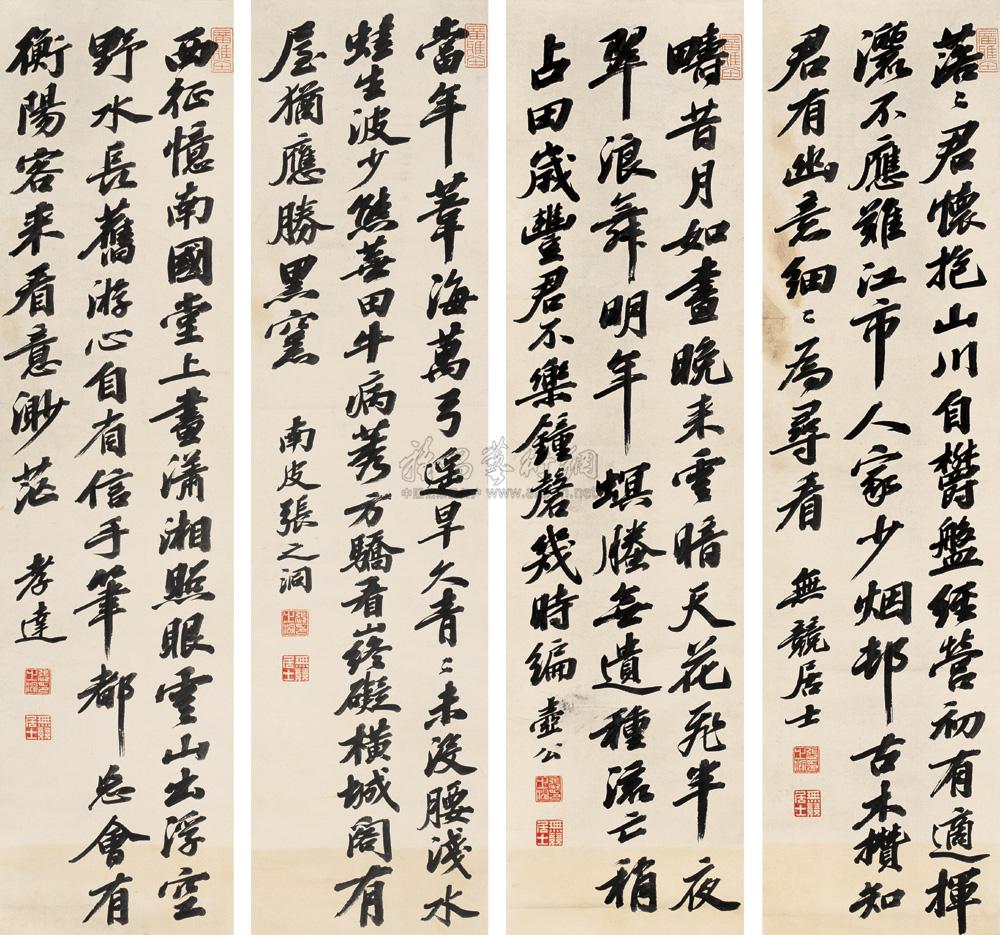 落〻君懷抱山川自欝盤經營初有適揮
灑不應難江市人家少烟邨古木攢知
君有幽意細〻為尋看 無競居士
疇昔月如晝晚来雲暗天花飛半夜
翠浪舞明年螟螣無遺種流亡稍
占田歲豐君不樂鐘磬幾時編 壺公
當年葦海萬弓遥早久青〻未没腰淺水
蛙生波少熊善田牛病莠方驕看山終礙橫城閣有
屋猶應勝黑窯 南皮張之洞
西征憶南國堂上畫瀟湘照眼雲山出浮空
野水長舊游心自有信手筆都忘會有
衡陽客来看意渺茫 孝達
張之洞
無競居士